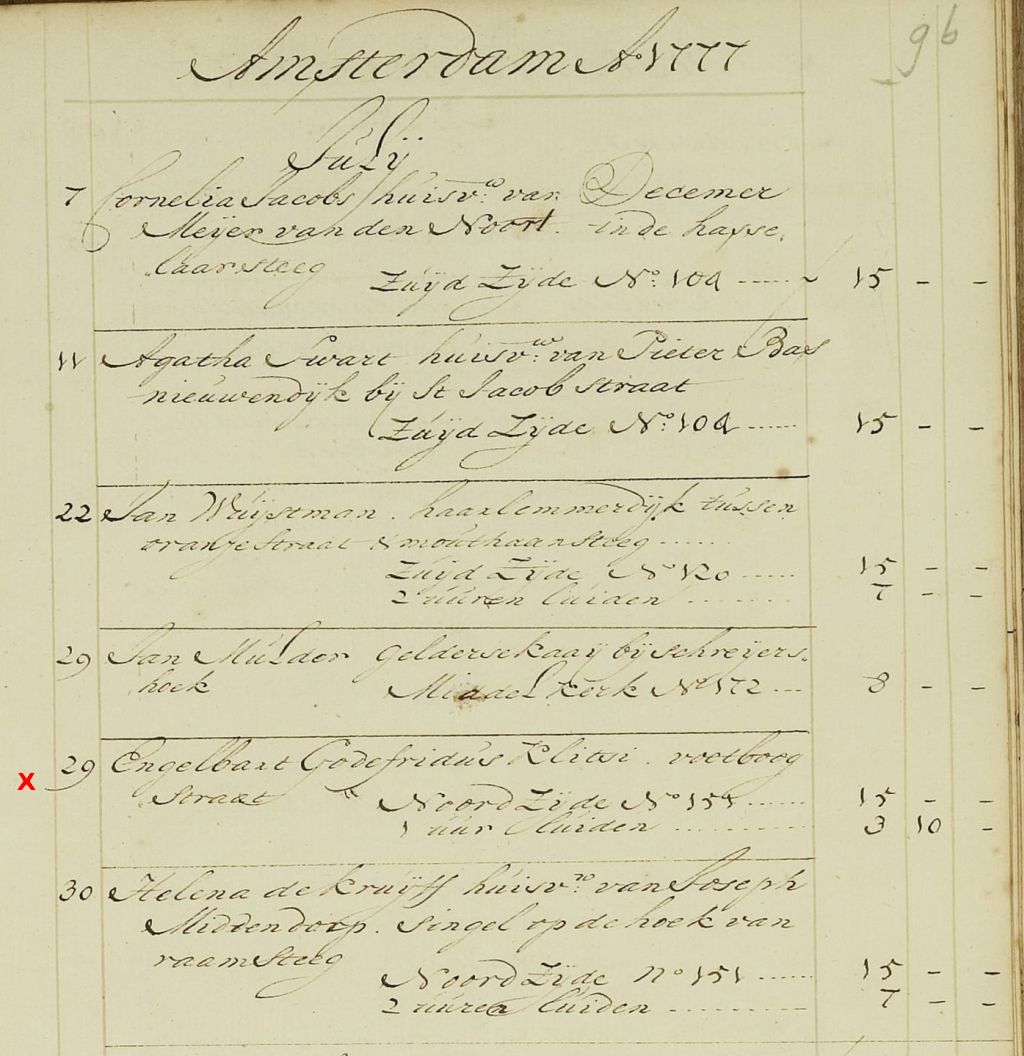 96
Amsterdam Ao. 1777
Julij
7 Cornelia Jacobs huisvw. van Decemer
Meijer van den Noort. in de hasse,
laar steeg
Zuijd Zijde No. 104 15 - -
11 Agatha Swart huisvw. van Pieter Bas
nieuwendijk bij St Jacob straat
Zuijd Zijde No. 104 15 - -
22 Jan Wuijstman. haarlemmerdijk tussen
oranje straat & mouthaan steeg
Zuijd Zijde No 120 15 - -
2 uuren luiden 7 - -
29 Jan Mulder geldersekaaij bij schreijers,
hoek Middel kerk No 172 8 - -
X 29 Engelbart Godefridus Klitsi. voetboog
straat Noord Zijde No 151 15 - -
1 uur luiden 3 10 -
30 Helena de kruijff huisvw. van Joseph
Middendorp. singel op de hoek van
raam steeg
Noord Zijde no 151 15 - -
2 uuren luiden 7 - -